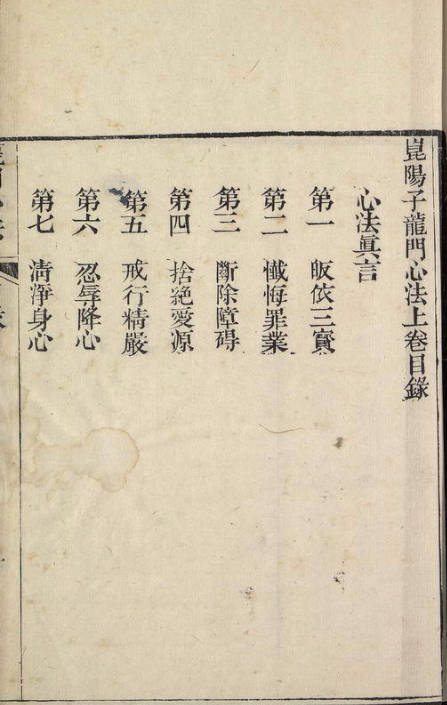 崑陽子龍門心法上卷目錄
心法眞言
第一　皈依三寶
第二　懺悔罪業
第三　斷除障碍
第四　捨絕愛源
第五　戒行精嚴
第六　忍辱降心
第七　淸淨身心